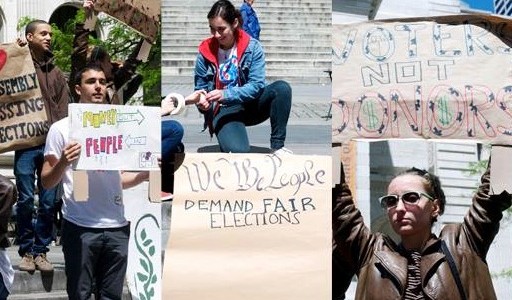 SEMBLY
SSING
ECTIONS
MONEY
OUT
PEOPLE
IN
We the People
DEMAND FAIR
ELECTIONS
VOTERS
NOT
DONORS